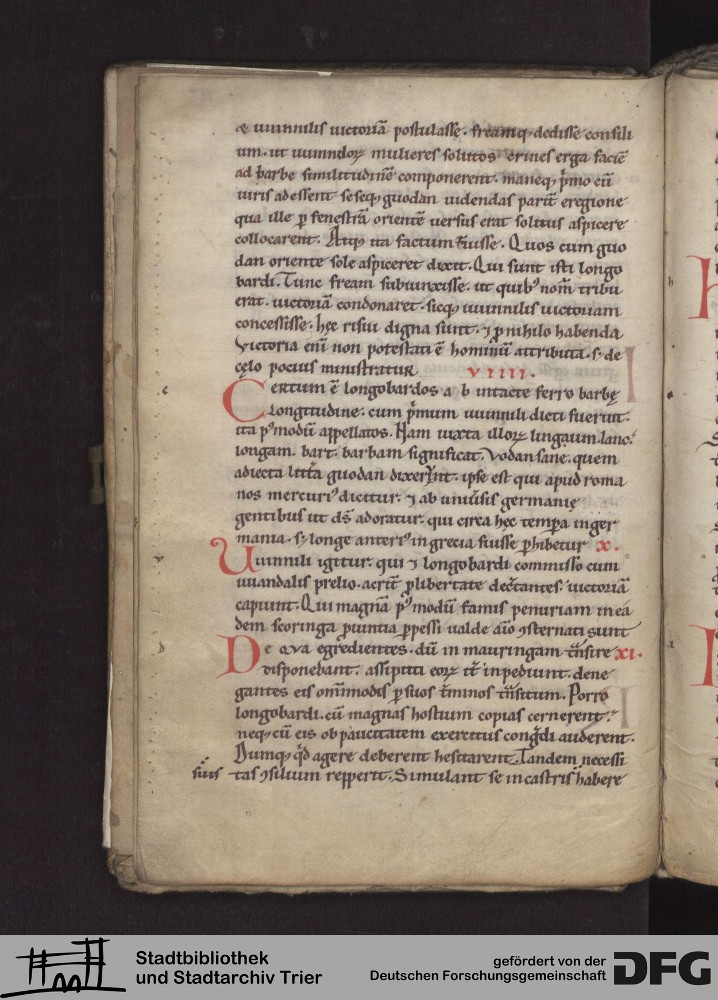 & uuinnilis uictoriā postulasse. freamq; dedisse consili
um. ut uuinnilorꝝ mulieres solutos crines erga faciē
ad barbe similitudinē componerent. maneq; p̄mo cū
uiris adessent seseq; guodan uidendas parit̄ e regione
qua ille ꝑ fenestrā orientē uersus erat solitus aspicere
collocarent. Atq; ita factum fuisse. Quos cum guo
dan oriente sole aspiceret dixit. Qui sunt isti longo
bardi. Tunc fream subiunxisse. ut quib; nom̄ tribu
erat. uictoriā condonaret. sicq; uuinnilis uictoriam
concessisse. hęc risui digna sunt. ⁊ ꝓ nihilo habenda
Victoria eni non potestati ē hominū attributa. s; de
cęlo pocius ministratur viiii.
Certum ē longobardos a b intacte ferro barbę
Longitudine. cum p̄mum uuinnili dicti fuerint.
ita p⁹modū appellatos. Nam iuxta illorꝝ linguam. lanc.
longam. bart. barbam significat. Vodan sane. quem
adiecta litt̄a guodan dixer̄nt. ipse est qui apud roma
nos mercuri⁹ dicitur. ⁊ ab uniu̅sis germanię
gentibus ut ds̄ adoratur. qui circa hęc tempꝛa in ger
mania. s; longe anteri⁹ in grecia fuisse ꝑhibetur x.
Uuinnili igitur. qui ⁊ longobardi commisso cum
uuandalis prelio. acrit̄ ꝓ libertate dec̄tantes. uictoriā
capiunt. Qui magnā p⁹modū famis penuriam in ea
dem scoringa ꝓuintia ꝑpessi ualde aīo ꝯsternati sunt
De qva egredientes. dū in mauringam t̄nsire xi.
disponebant. assipitti eorꝝ it̄ inpediunt. dene
gantes eis omīmodis ꝑ suos t̄minos t̄nsitum. Porro
longobardi. cū magnas hostium copias cernerent.
neq; cū eis ob paucitatem exercitus cong̅di auderent.
Dumq; q̄d agere deberent hesitarent. Tandem necessi
tas ꝯsilium repperit. Simulant se in castris habere
suis
Stadtbibliothek
und Stadtarchiv Trier
gefördert von der
Deutschen Forschungsgemeinschaft
DFG